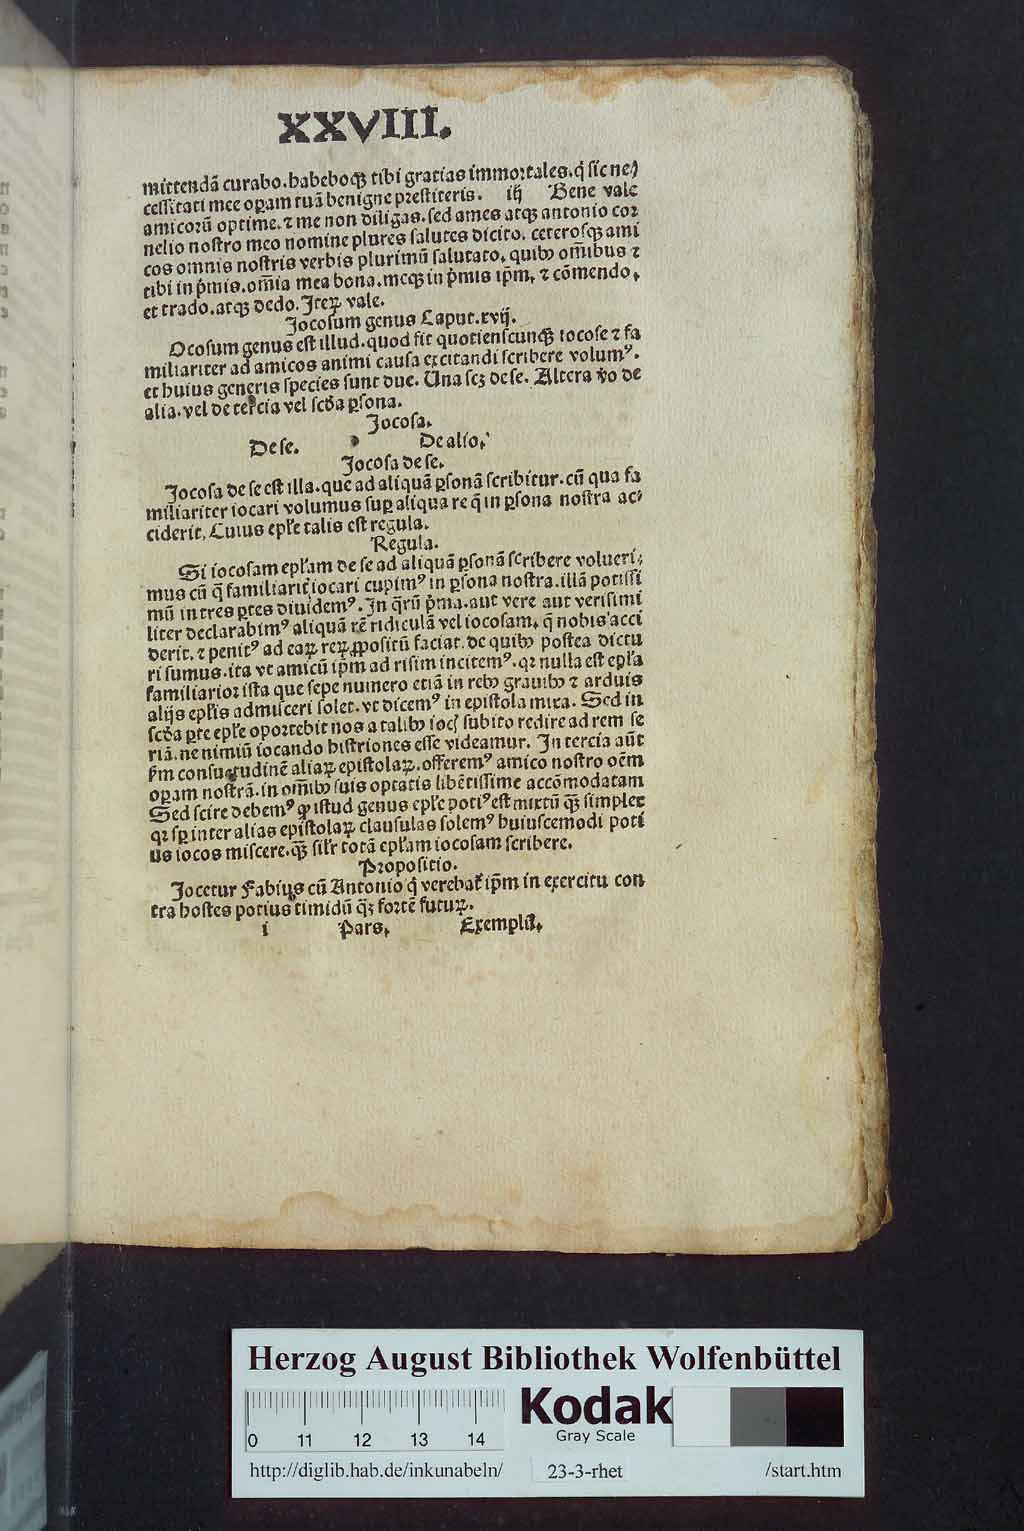 XXVIII.
mittendā curabo. habeboqꝫ tibi gratias immortales. q̇ sic ne⸗
cessitati mee oꝑam tuā benigne prestiteris. iij Bene vale
amicorū optime. ⁊ me non diligas. sed ames atqꝫ antonio cor
nelio nostro meo nomine plures salutes dicito. ceterosqꝫ ami
cos omnis nostris verbis plurimū salutato. quibꝰ om̄ibus ⁊
tibi in p̄mis. om̄ia mea bona. meqꝫ in p̄mis ip̄m. ⁊ cōmendo.
et trado. atqꝫ dedo. Iteꝝ vale.
Iocosum genus Caput. xvij.
Ocosum genus est illud. quod fit quotienscunqꝫ iocose ⁊ fa
miliariter ad amicos animi causa excitandi scribere volumꝰ.
et huius generis species sunt due. Una scꝫ de se. Altera v̄o de
alia. vel de tercia vel scd̄a ꝑsona.
Iocosa.
De se. De alio.
Iocosa de se.
Iocosa de se est illa. que ad aliquā ꝑsonā scribitur. cū qua fa
miliariter iocari volumus suꝑ aliqua re q̄ in ꝑsona nostra ac⸗
ciderit. Cuius ep̄le talis est regula.
Regula.
Si iocosam ep̄lam de se ad aliquā ꝑsonā scribere volueri⸗
mus cū q̄ familiarit̉ iocari cupimꝰ in ꝑsona nostra. illā potissi
mū in tres ꝑtes diuidemꝰ. In q̄rū p̄ma. aut vere aut verisimi
liter declarabimꝰ aliquā rē ridiculā vel iocosam. q̄ nobis acci
derit. ⁊ penitꝰ ad eaꝝ reꝝ ꝓpositū faciat. de quibꝰ postea dictu
ri sumus. ita vt amicū ip̄m ad risim incitemꝰ. qꝛ nulla est ep̄la
familiarior ista que sepe numero etiā in rebꝰ grauibꝰ ⁊ arduis
alijs ep̄lis admisceri solet. vt dicemꝰ in epistola mixta. Sed in
scd̄a ꝑte ep̄le oportebit nos a talibꝰ ioc̄ subito redire ad rem se
riā. ne nimiū iocando histriones esse videamur. In tercia aūt
p̄m consuetudinē aliaꝝ epistolaꝝ. offeremꝰ amico nostro oēm
oꝑam nostrā. in om̄ibꝰ suis optatis libētissime accōmodatam
Sed scire debemꝰ ꝙ istud genus ep̄le potiꝰ est mixtū qꝫ̄ simplex
qꝛ sꝑ inter alias epistolaꝝ clausulas solemꝰ huiuscemodi poti
us iocos miscere. qꝫ̄ sil̄r totā ep̄lam iocosam scribere.
Propositio.
Iocetur Fabius cū Antonio q̇ verebat̉ ip̄m in exercitu con
tra hostes potius timidū qꝫ̄ fortē futuꝝ.
i Pars. Exemplū.
Herzog August Bibliothek Wolfenbüttel
Kodak
Gray Scale
0 11 12 13 14
http://diglib.hab.de/inkunabeln/ 23-3-rhet /start.htm